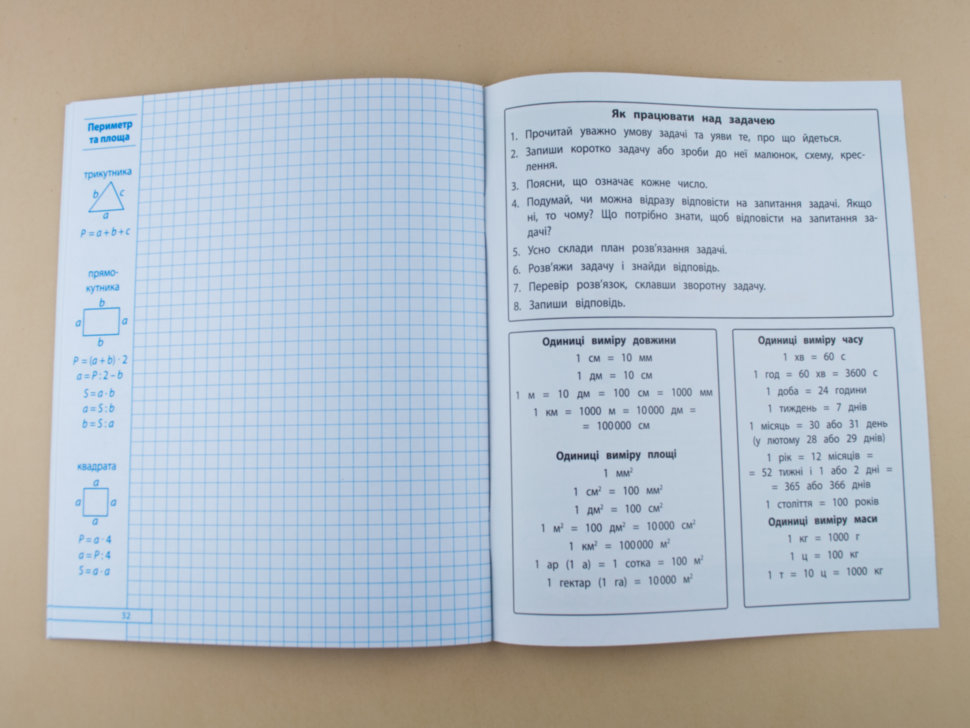 Периметр
та площа
трикутника
b
c
a
P = a + b + c
прямо-
кутника
b
a
a
b
P = (a + b) · 2
a = P : 2 – b
S = a · b
a = S : b
b = S : a
квадрата
a
a
a
a
P = a · 4
a = P : 4
S = a · a
32
Як працювати над задачею
1. Прочитай уважно умову задачі та уяви те, про що йдеться.
2. Запиши коротко задачу або зроби до неї малюнок, схему, крес-
лення.
3. Поясни, що означає кожне число.
4. Подумай, чи можна відразу відповісти на запитання задачі. Якщо
ні, то чому? Що потрібно знати, щоб відповісти на запитання за-
дачі?
5. Усно склади план розв'язання задачі.
6. Розв'яжи задачу і знайди відповідь.
7. Перевір розв'язок, склавши зворотну задачу.
8. Запиши відповідь.
Одиниці виміру довжини
1 см = 10 мм
1 дм = 10 см
1 м = 10 дм = 100 см = 1000 мм
1 км = 1000 м = 10 000 дм =
= 100 000 см
Одиниці виміру площі
1 мм²
1 см² = 100 мм²
1 дм² = 100 см²
1 м² = 100 дм² = 10 000 см²
1 км² = 100 000 м²
1 ар (1 а) = 1 сотка = 100 м²
1 гектар (1 га) = 10 000 м²
Одиниці виміру часу
1 хв = 60 с
1 год = 60 хв = 3600 с
1 доба = 24 години
1 тиждень = 7 днів
1 місяць = 30 або 31 день
(у лютому 28 або 29 днів)
1 рік = 12 місяців =
= 52 тижні і 1 або 2 дні =
= 365 або 366 днів
1 століття = 100 років
Одиниці виміру маси
1 кг = 1000 г
1 ц = 100 кг
1 т = 10 ц = 1000 кг